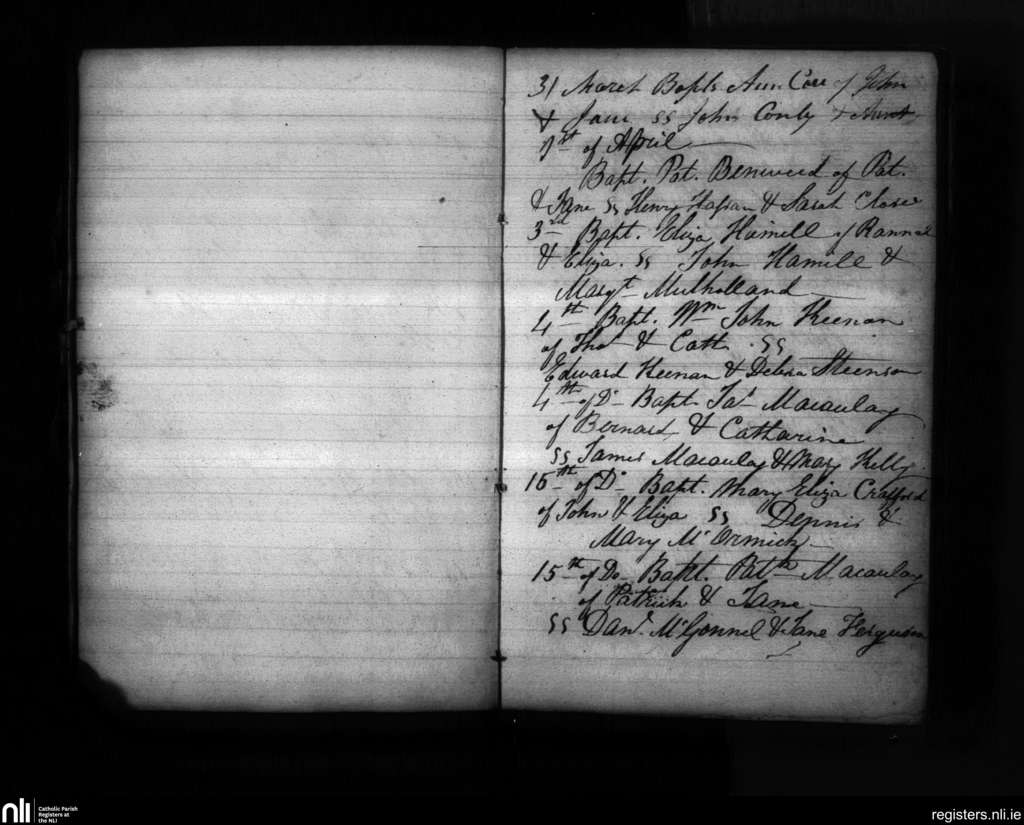 31 March Bapts Ann Coll of John
& Jane SS John Conly & Aunt
1st of April
Bapt. Pat. of Pat.
& Jane SS Henry Hassan & Sarah Close
3rd Bapt. Eliza Hamill of Rannal
& Eliza. SS John Hamill &
Margt Mulholland
4th Bapt. Wm John Keenan
of Thos & Cath. SS
Edward Keenan & Debra Steenson
4th of Do Bapt. Jas Macaulay
of Bernard & Catharine
SS James Macaulay & Mary Kelly.
15th of Do Bapt. Mary Eliza Crafford
of John & Eliza SS Dennis &
Mary McOrmick
15th of Do Bapt. Patk Macaulay
of Patrick & Jane
SS Danl. McGonnel & Jane Ferguson
nli
Catholic Parish
Registers at
the NLI
registers.nli.ie